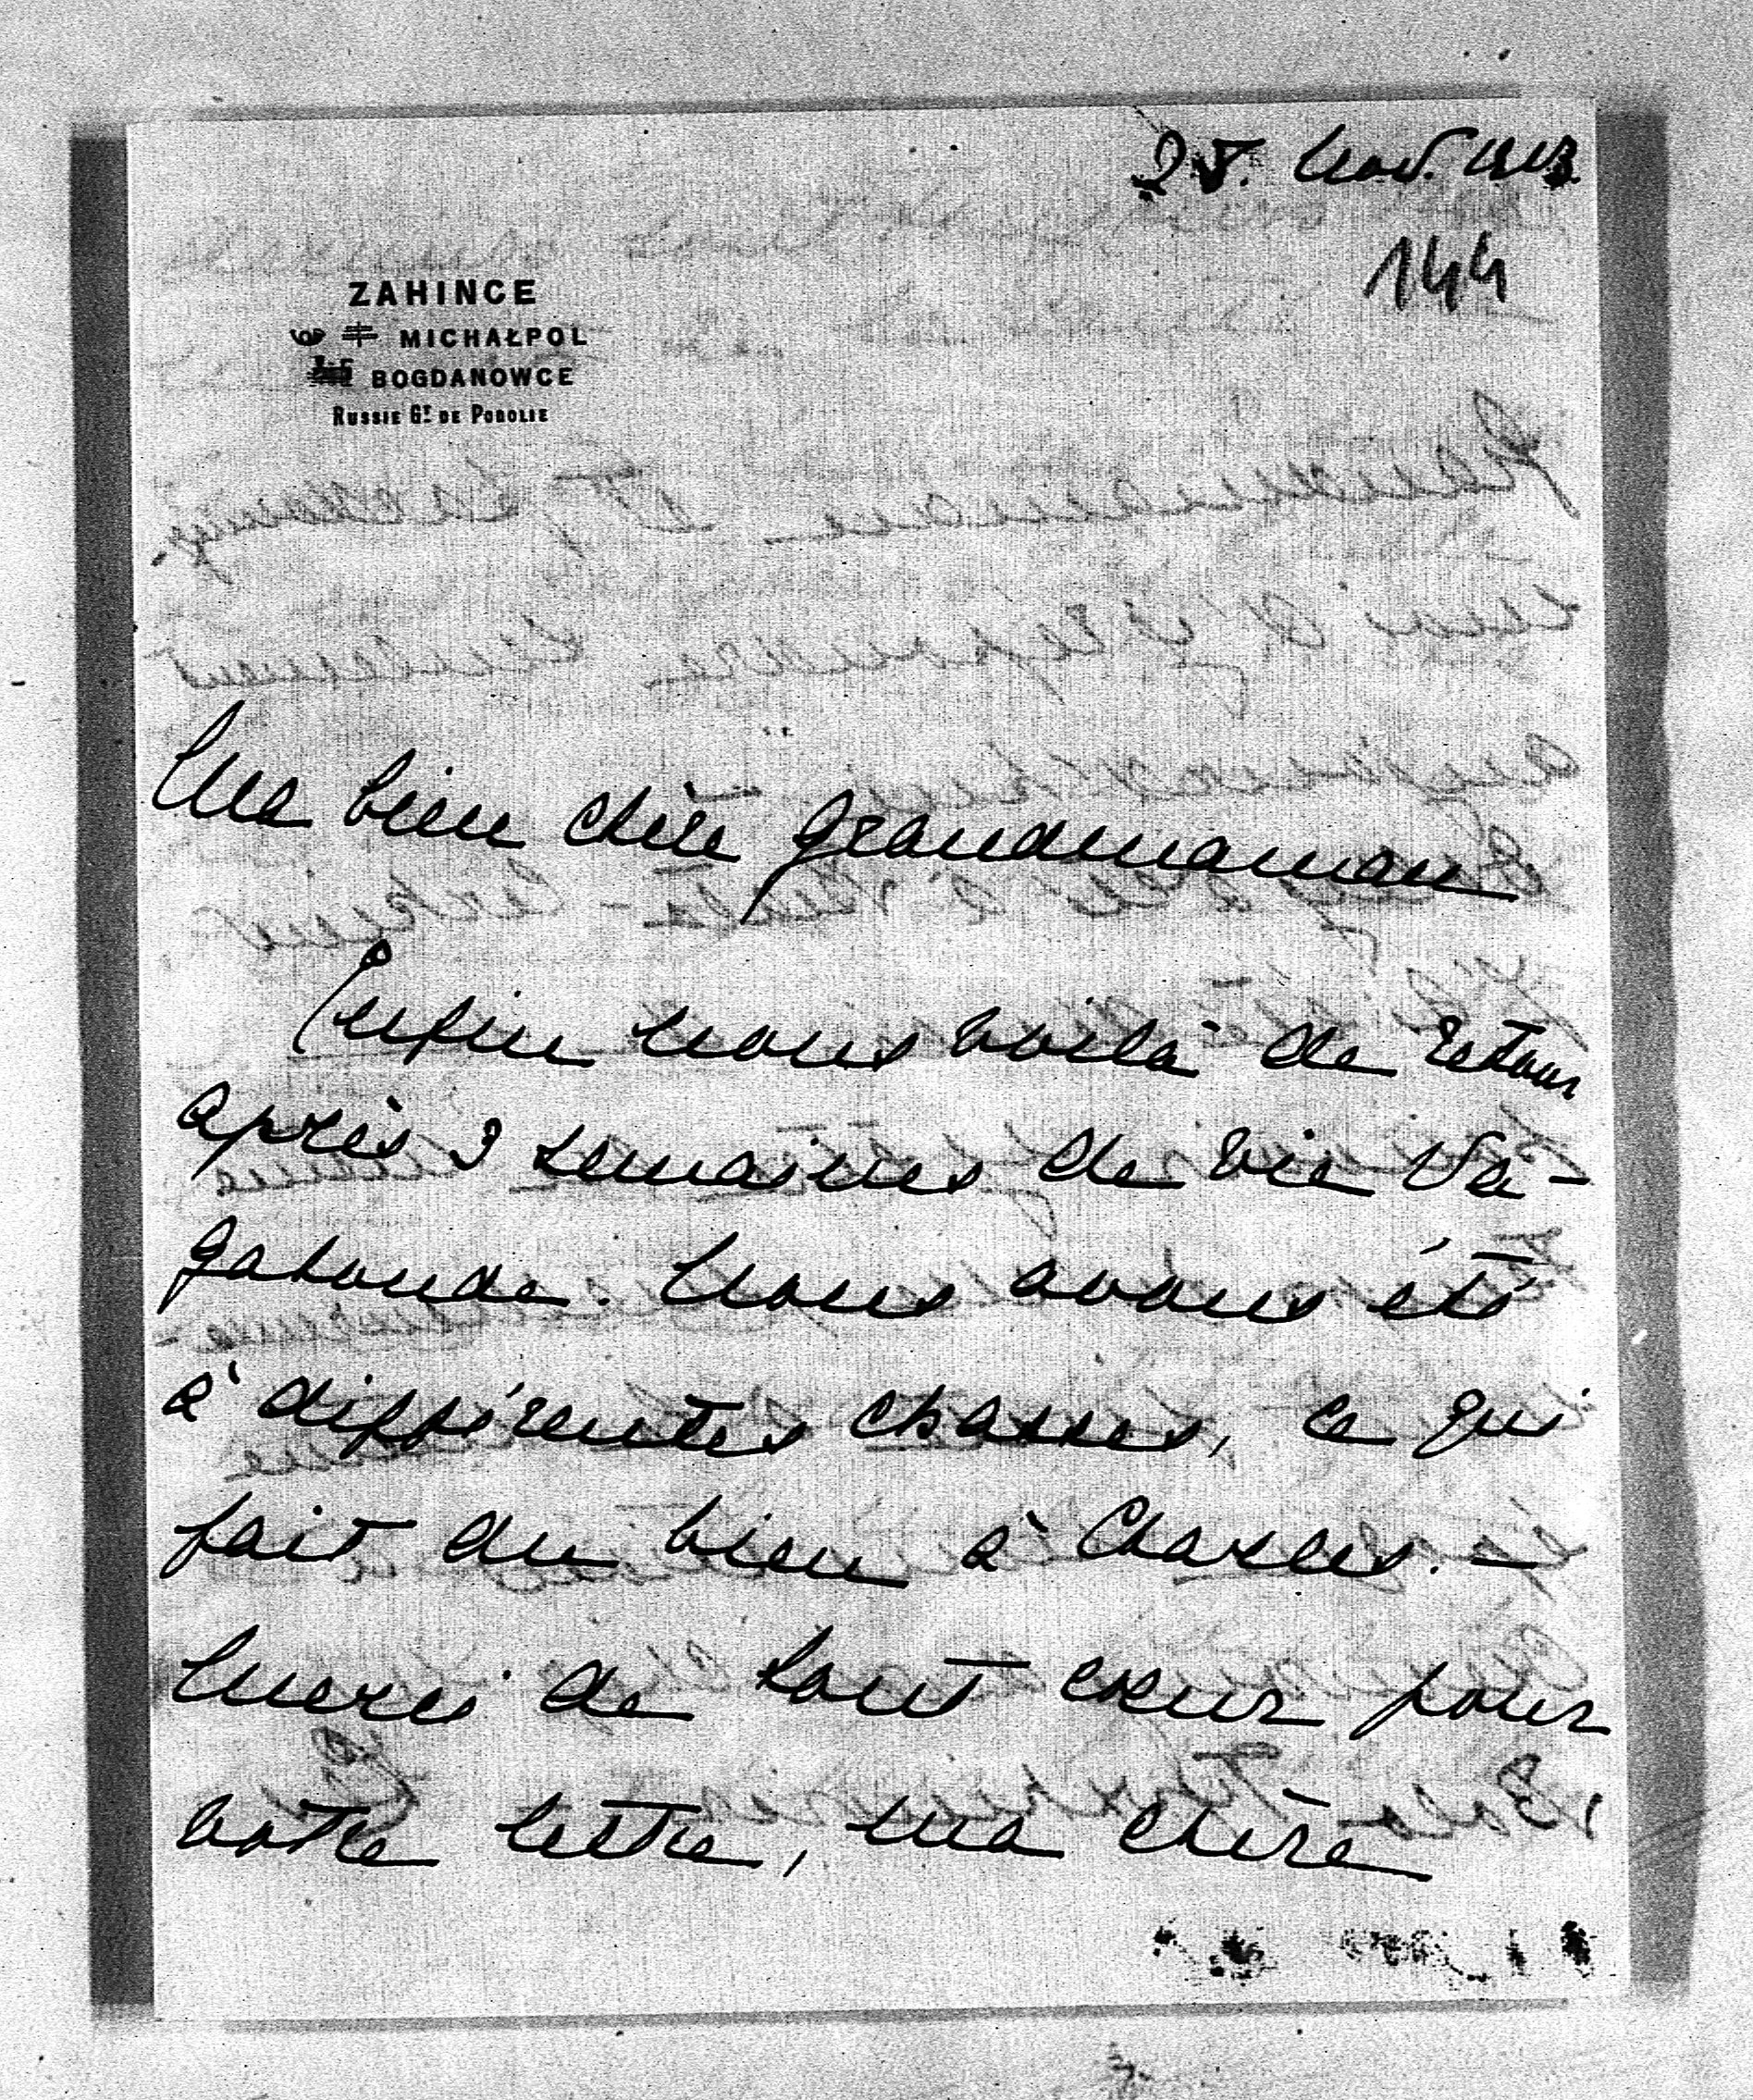 25. Nov. 1913.
144
ZAHINCE
MICHAŁPOL
BOGDANOWCE
RUSSIE GT. DE PODOLIE
Ma bien chère grandmaman
Enfin nous voilà de retour
après 3 semaines de vie va-
gabonde. Nous avons été
à différentes chasses, ce qui
fait du bien à Charles. –
Merci de tout cœur pour
votre lettre, ma chère